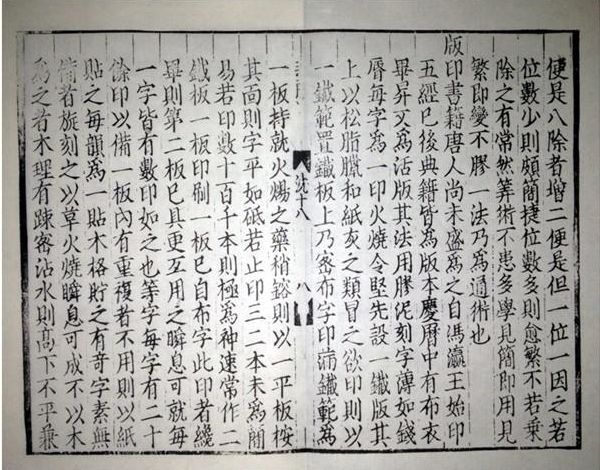 便是八除者增二便是但一位一因之若
位數少則頗簡捷位數多則愈繁不若乗
除之有常然筭術不患多學見簡即用見
繁即變不膠一法乃爲通術也
版印書籍唐人尚未盛爲之自馮瀛王始印
五經已後典籍皆爲版本慶曆中有布衣
畢昇又爲活版其法用膠泥刻字薄如錢
脣每字爲一印火燒令堅先設一鐵版其
上以松脂臘和紙灰之類冒之欲印則以
一鐵範置鐵板上乃密布字印滿鐵範爲
沈十八
八
一板持就火煬之藥稍鎔則以一平板按
其面則字平如砥若止印三二本未爲簡
易若印數十百千本則極爲神速常作二
鐵板一板印刷一板已自布字此印者纔
畢則第二板已具更互用之瞬息可就每
一字皆有數印如之也等字每字有二十
餘印以備一板內有重複者不用則以紙
貼之每韻爲一貼木格貯之有奇字素無
備者旋刻之以草火燒瞬息可成不以木
爲之者木理有疎密沾水則高下不平兼